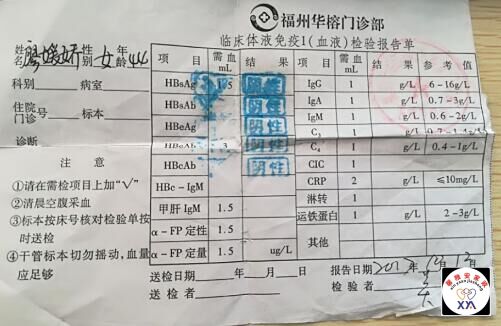 福州华榕门诊部
临床体液免疫I(血液)检验报告单
姓名 性别 女 年龄 44
科别 病室
住院门诊号 标本
诊断
注意
①请在需检项目上加"√"
②清晨空腹采血
③标本按床号核对检验单按时送检
④干管标本切勿摇动,血量应足够
项目 需血mL 结果 项目 需血mL 结果 参考值
HBsAg 1.5 阴性 IgG 1 g/L 6-16g/L
HBsAb 阴性 IgA 1 g/L 0.7-3g/L
HBeAg 阴性 IgM 1 g/L 0.6-2g/L
HBeAb 3 阴性 C3 1 g/L
HBcAb 阴性 C4 1 g/L 0.4-1g/L
HBc-IgM CIC 1
甲肝IgM 1.5 CRP 2 g/L ≤10mg/L
α-FP定性 1.5 淋转 1
α-FP定量 1.5 ug/L 运铁蛋白 1 2-3g/L
其他
送检日期 年 月 日 报告日期
送检者 检验者
XYA